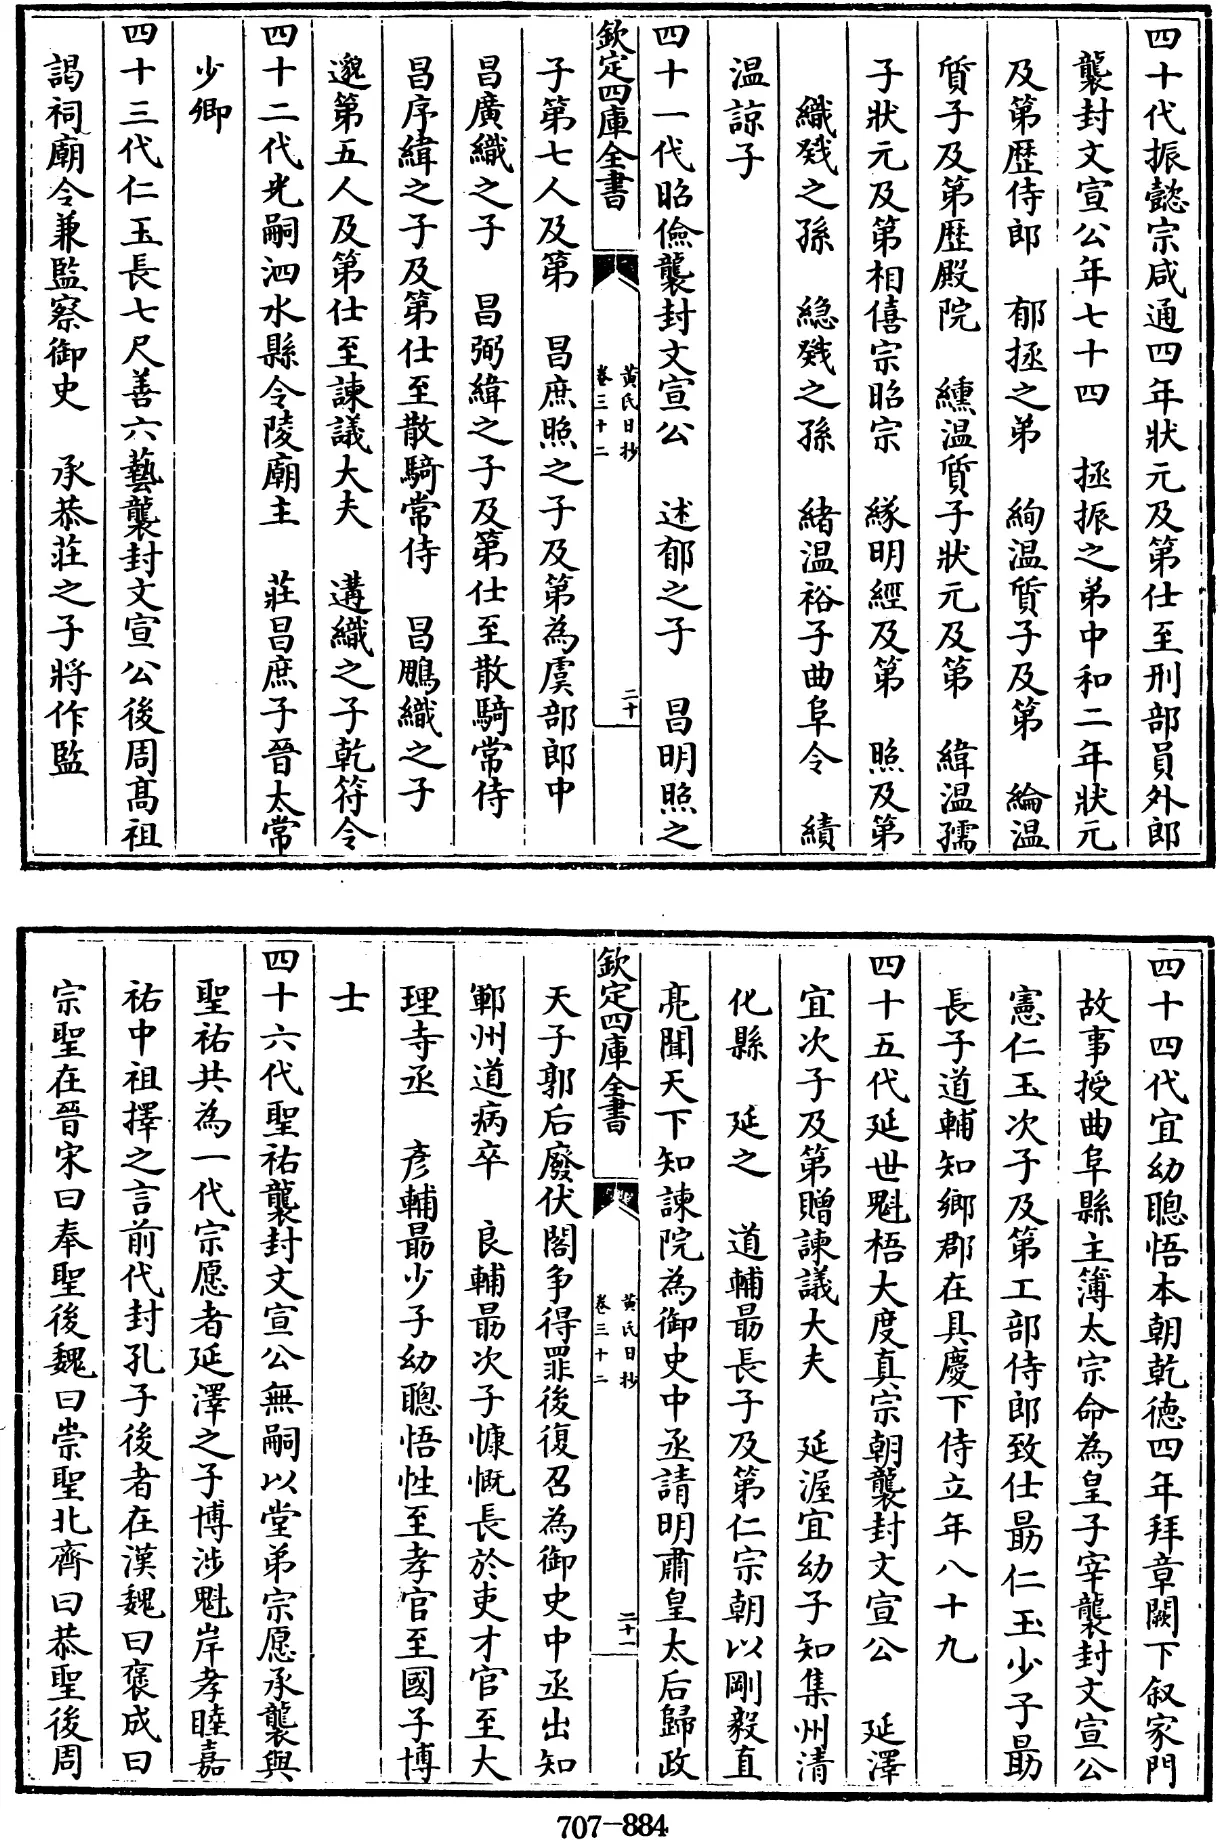 四十代振懿宗咸通四年狀元及第仕至刑部員外郎
襲封文宣公年七十四　拯振之弟中和二年狀元
及第歴侍郎　郁拯之弟　絢温質子及第　綸温
質子及第歴殿院　纁温質子狀元及第　緯温孺
子狀元及第相僖宗昭宗　緣明經及第　照及第
織戣之孫　緫戣之孫　緒温裕子曲阜令　績
温諒子
四十一代昭儉襲封文宣公　述郁之子　昌明照之
欽定四庫全書
黃氏日抄
卷三十二
二十
子第七人及第　昌庶照之子及第為虞部郎中
昌廣織之子　昌弼緯之子及第仕至散騎常侍
昌序緯之子及第仕至散騎常侍　昌鵬織之子
邈第五人及第仕至諫議大夫　遘織之子乾符令
四十二代光嗣泗水縣令陵廟主　莊昌庶子晉太常
少卿
四十三代仁玉長七尺善六藝襲封文宣公後周高祖
謁祠廟令兼監察御史　承恭莊之子將作監
四十四代宜幼聰悟本朝乾徳四年拜章闕下叙家門
故事授曲阜縣主簿太宗命為皇子宰襲封文宣公
憲仁玉次子及第工部侍郎致仕朂仁玉少子朂
長子道輔知鄉郡在具慶下侍立年八十九
四十五代延世魁梧大度真宗朝襲封文宣公　延澤
宜次子及第贈諫議大夫　延渥宜幼子知集州清
化縣　延之　道輔朂長子及第仁宗朝以剛毅直
亮聞天下知諫院為御史中丞請明肅皇太后歸政
欽定四庫全書
黃氏日抄
卷三十二
二十一
天子郭后廢伏閤争得罪後復召為御史中丞出知
鄆州道病卒　良輔朂次子慷慨長於吏才官至大
理寺丞　彦輔朂少子幼聰悟性至孝官至國子博
士
四十六代聖祐襲封文宣公無嗣以堂弟宗愿承襲與
聖祐共為一代宗愿者延澤之子博涉魁岸孝睦嘉
祐中祖擇之言前代封孔子後者在漢魏曰褒成曰
宗聖在晉宋曰奉聖後魏曰崇聖北齊曰恭聖後周
707-884